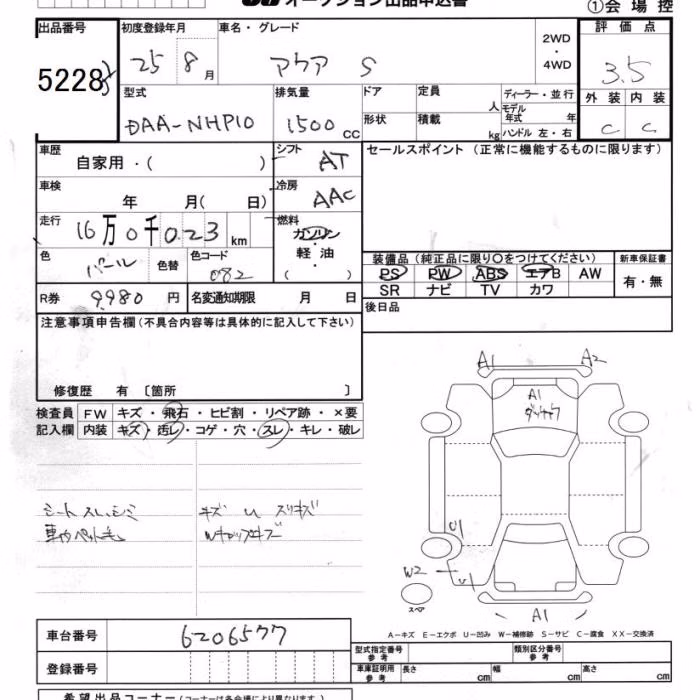 オークション出品申込書
①会場控
出品番号 初度登録年月 車名・グレード 2WD・4WD 評価点
5228 25 8月 アクア S 3.5
型式 排気量 ドア 定員 人 ディーラー・並行 外装 内装
DAA-NHP10 1500cc 形状 積載 kg モデル年式 年 ハンドル 左・右 C C
車歴 自家用・( ) シフト AT セールスポイント(正常に機能するものに限ります)
車検 年 月( 日) 冷房 AAC
走行 16万0千023km 燃料 ガソリン・軽油・( )
色 パール 色替 色コード 082
装備品(純正品に限り○をつけてください) 新車保証書
PS PW ABS エアB AW 有・無
SR ナビ TV カワ
R券 9980円 名変通知期限 月 日 後日品
注意事項申告欄(不具合内容等は具体的に記入して下さい)
修復歴 有〔箇所 〕
検査員記入欄 FW キズ・飛石・ヒビ割・リペア跡・×要
内装 キズ・汚レ・コゲ・穴・スレ・キレ・破レ
シート スレ、シミ キズ U スリキズ
車内ペット毛 Wキャップキズ
A1 A2
A1
U1
W2
U1
スペア
A1
A−キズ E−エクボ U−凹み W−補修跡 S−サビ C−腐食 XX−交換済
車台番号 6206577
型式指定番号 参考 類別区分番号 参考
登録番号 車庫証明用 参考 長さ cm 幅 cm 高さ cm
希望出品コーナー(コーナーは各会場により異なります)